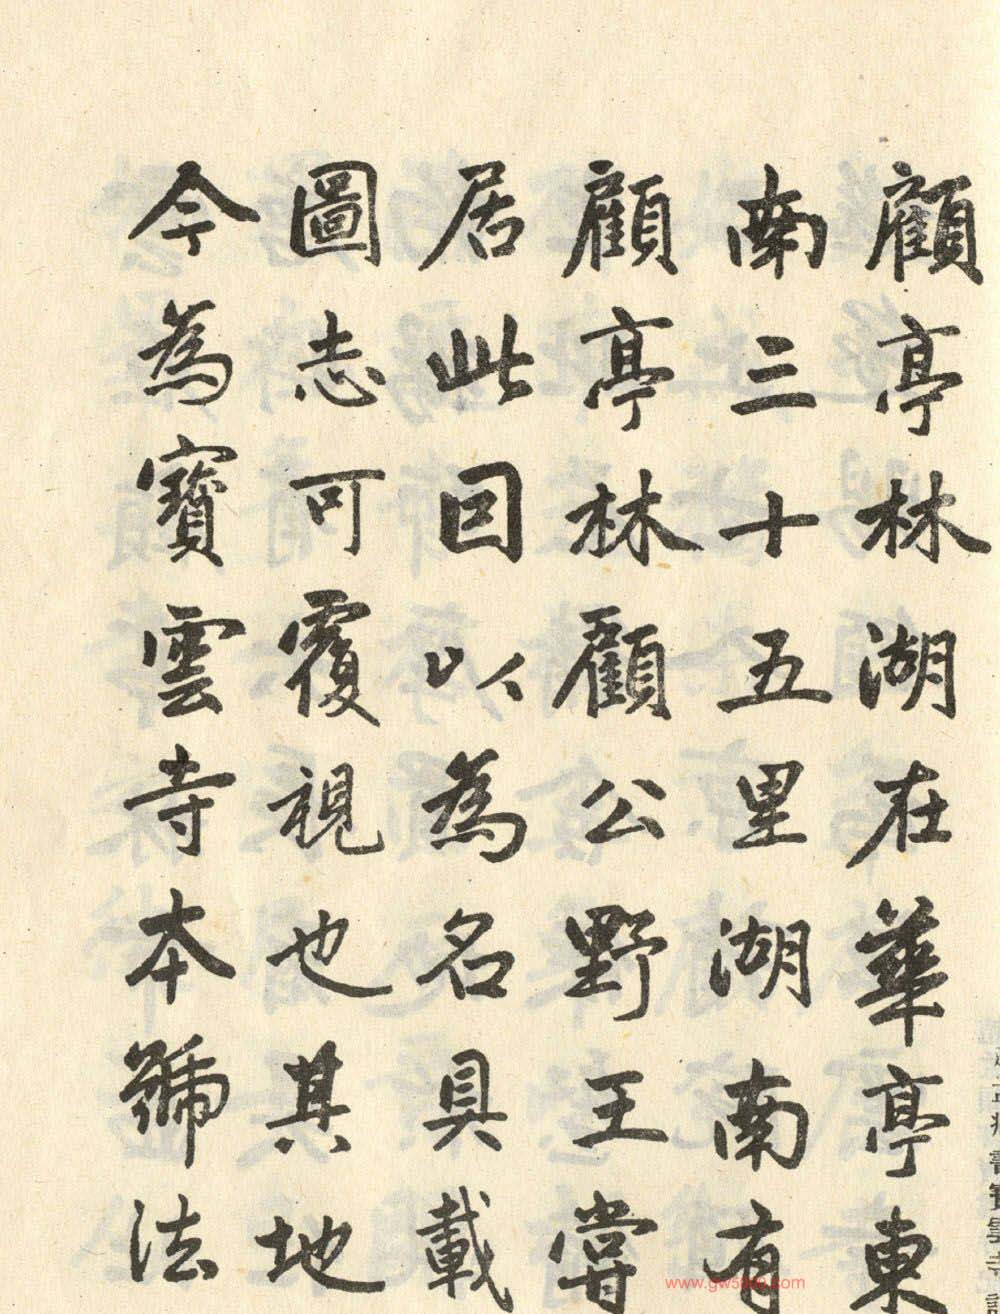 顧亭林湖在華亭東
南三十五里湖南有
顧亭林顧公野王嘗
居此因以為名具載
圖志可覆視也其地
今為寶雲寺本號法